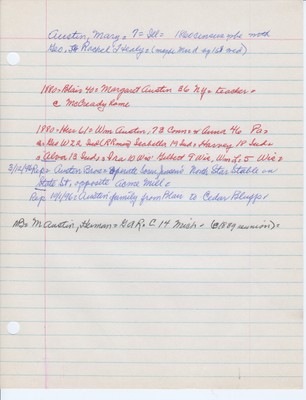 Austin, Mary = 7 = Ill = 1860 census w/be moth
Geo, Ja Rachel J Healy = (maybe Mard by 1st md)
1880 = Blair 40 = Margaret Austin 26 NY = teacher =
@ McCready home
1880 = Her 61 = Wm Austin, 73 Conn = & Anna 46 Pa =
Geo W 22 Ind (RR man) Isabella 19 Ind = Harvey 18 Ind =
Alva 13 Ind = Ira 10 Wis Gilbert 9 Wis, Wm J, 5 Wis =
3/12/96 Rep = Austin Bros = operate North Star Stable on
State St, opposite Acme Mill =
Rep 1/4/96 = Austin family from Blair to Cedar Bluffs =
MB = M Austin, Herman = GAR = C. 14 Mich = (@ 1889 reunion) =